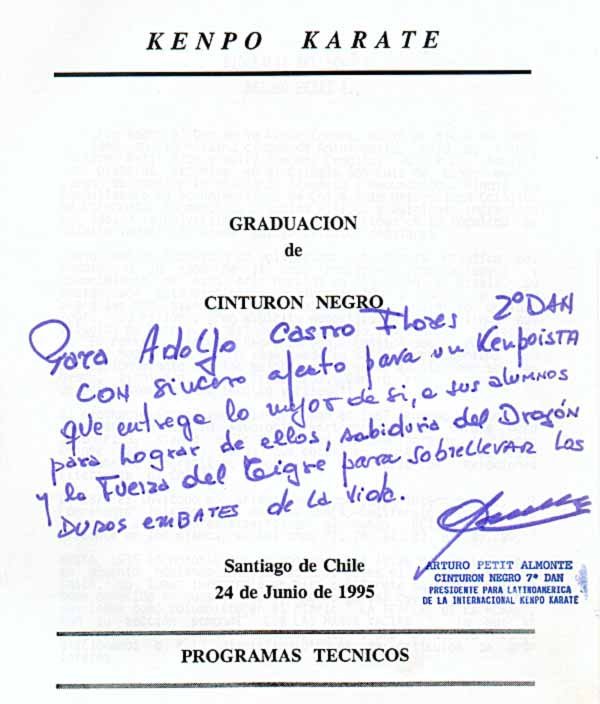 KENPO KARATE
GRADUACION
de
CINTURON NEGRO
Para Adolfo Castro Flores 2º DAN
CON sincero afecto para un KenpoISTA
que entrega lo mejor de si, a sus alumnos
para lograr de ellos, sabiduria del Dragón
y la Fuerza del Tigre para sobrellevar los
DUROS EMBATES de la vida.
Santiago de Chile
24 de Junio de 1995
ARTURO PETIT ALMONTE
CINTURON NEGRO 7º DAN
PRESIDENTE PARA LATINOAMERICA
DE LA INTERNACIONAL KENPO KARATE
PROGRAMAS TECNICOS